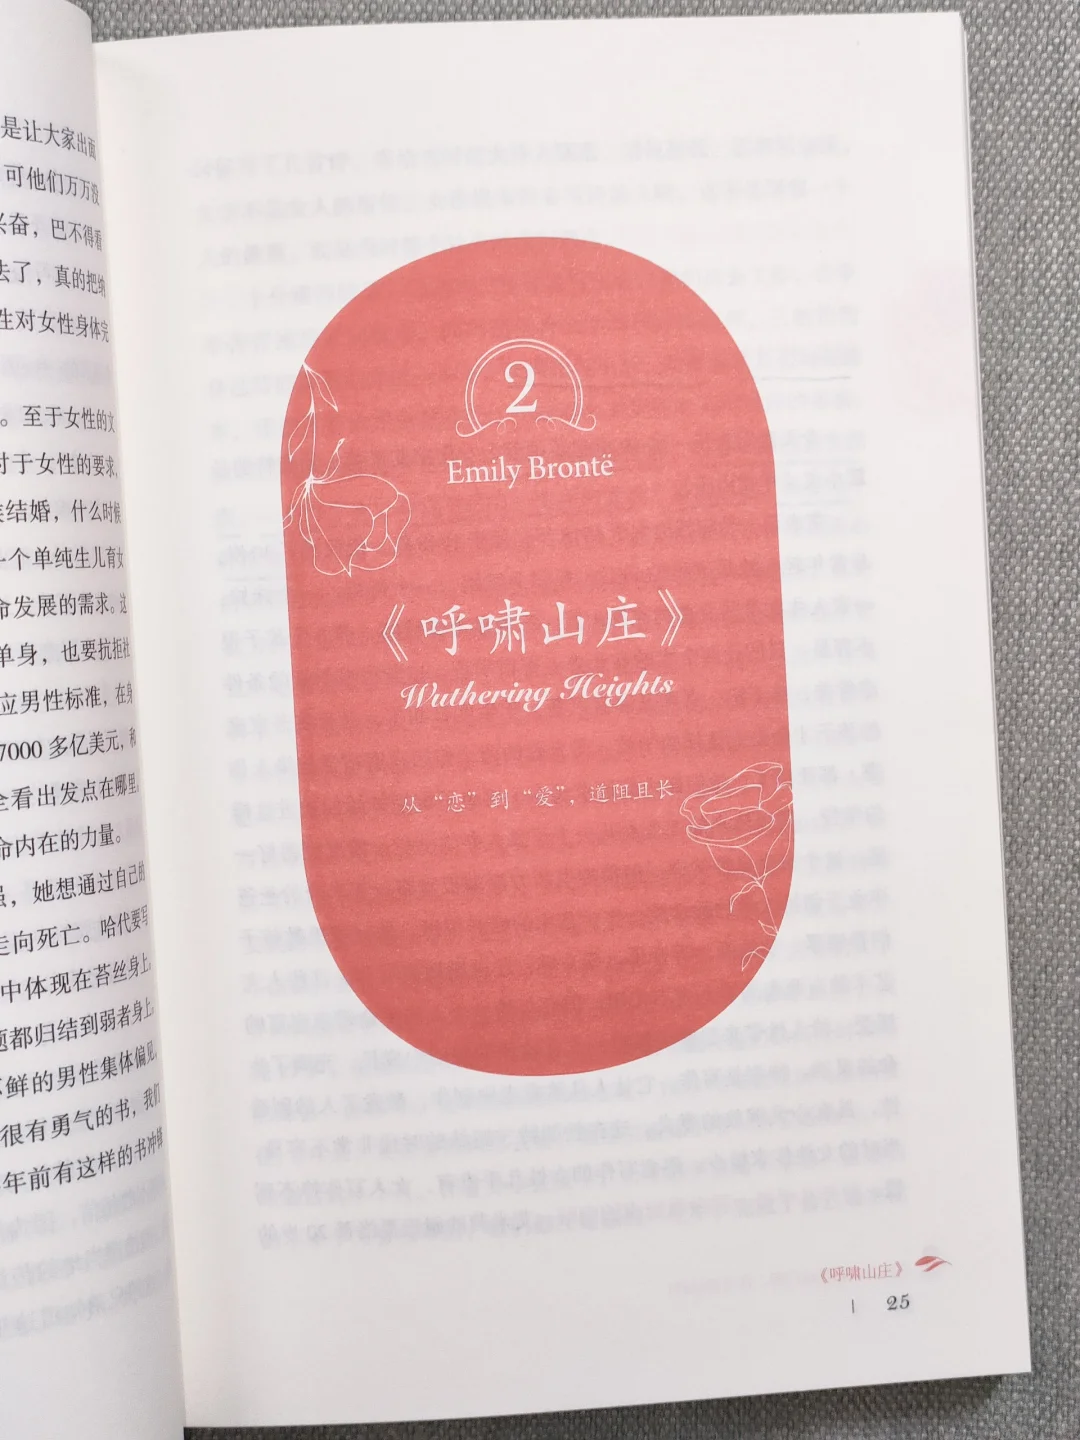 是让大家出面
可他们万万没
兴奋，巴不得看
去了，真的把纳
生对女性身体完
。至于女性的文
对于女性的要求，
结婚，什么时候
个单纯生儿育女
命发展的需求。这
单身，也要抗拒社
立男性标准，在身
7000 多亿美元，和
全看出发点在哪里，
命内在的力量。
强，她想通过自己的
走向死亡。哈代要写
中体现在苔丝身上，
题都归结到弱者身上。
鲜的男性集体偏见，
很有勇气的书，我们
年前有这样的书冲锋
2
Emily Brontë
《呼啸山庄》
Wuthering Heights
从“恋”到“爱”，道阻且长
《呼啸山庄》
25